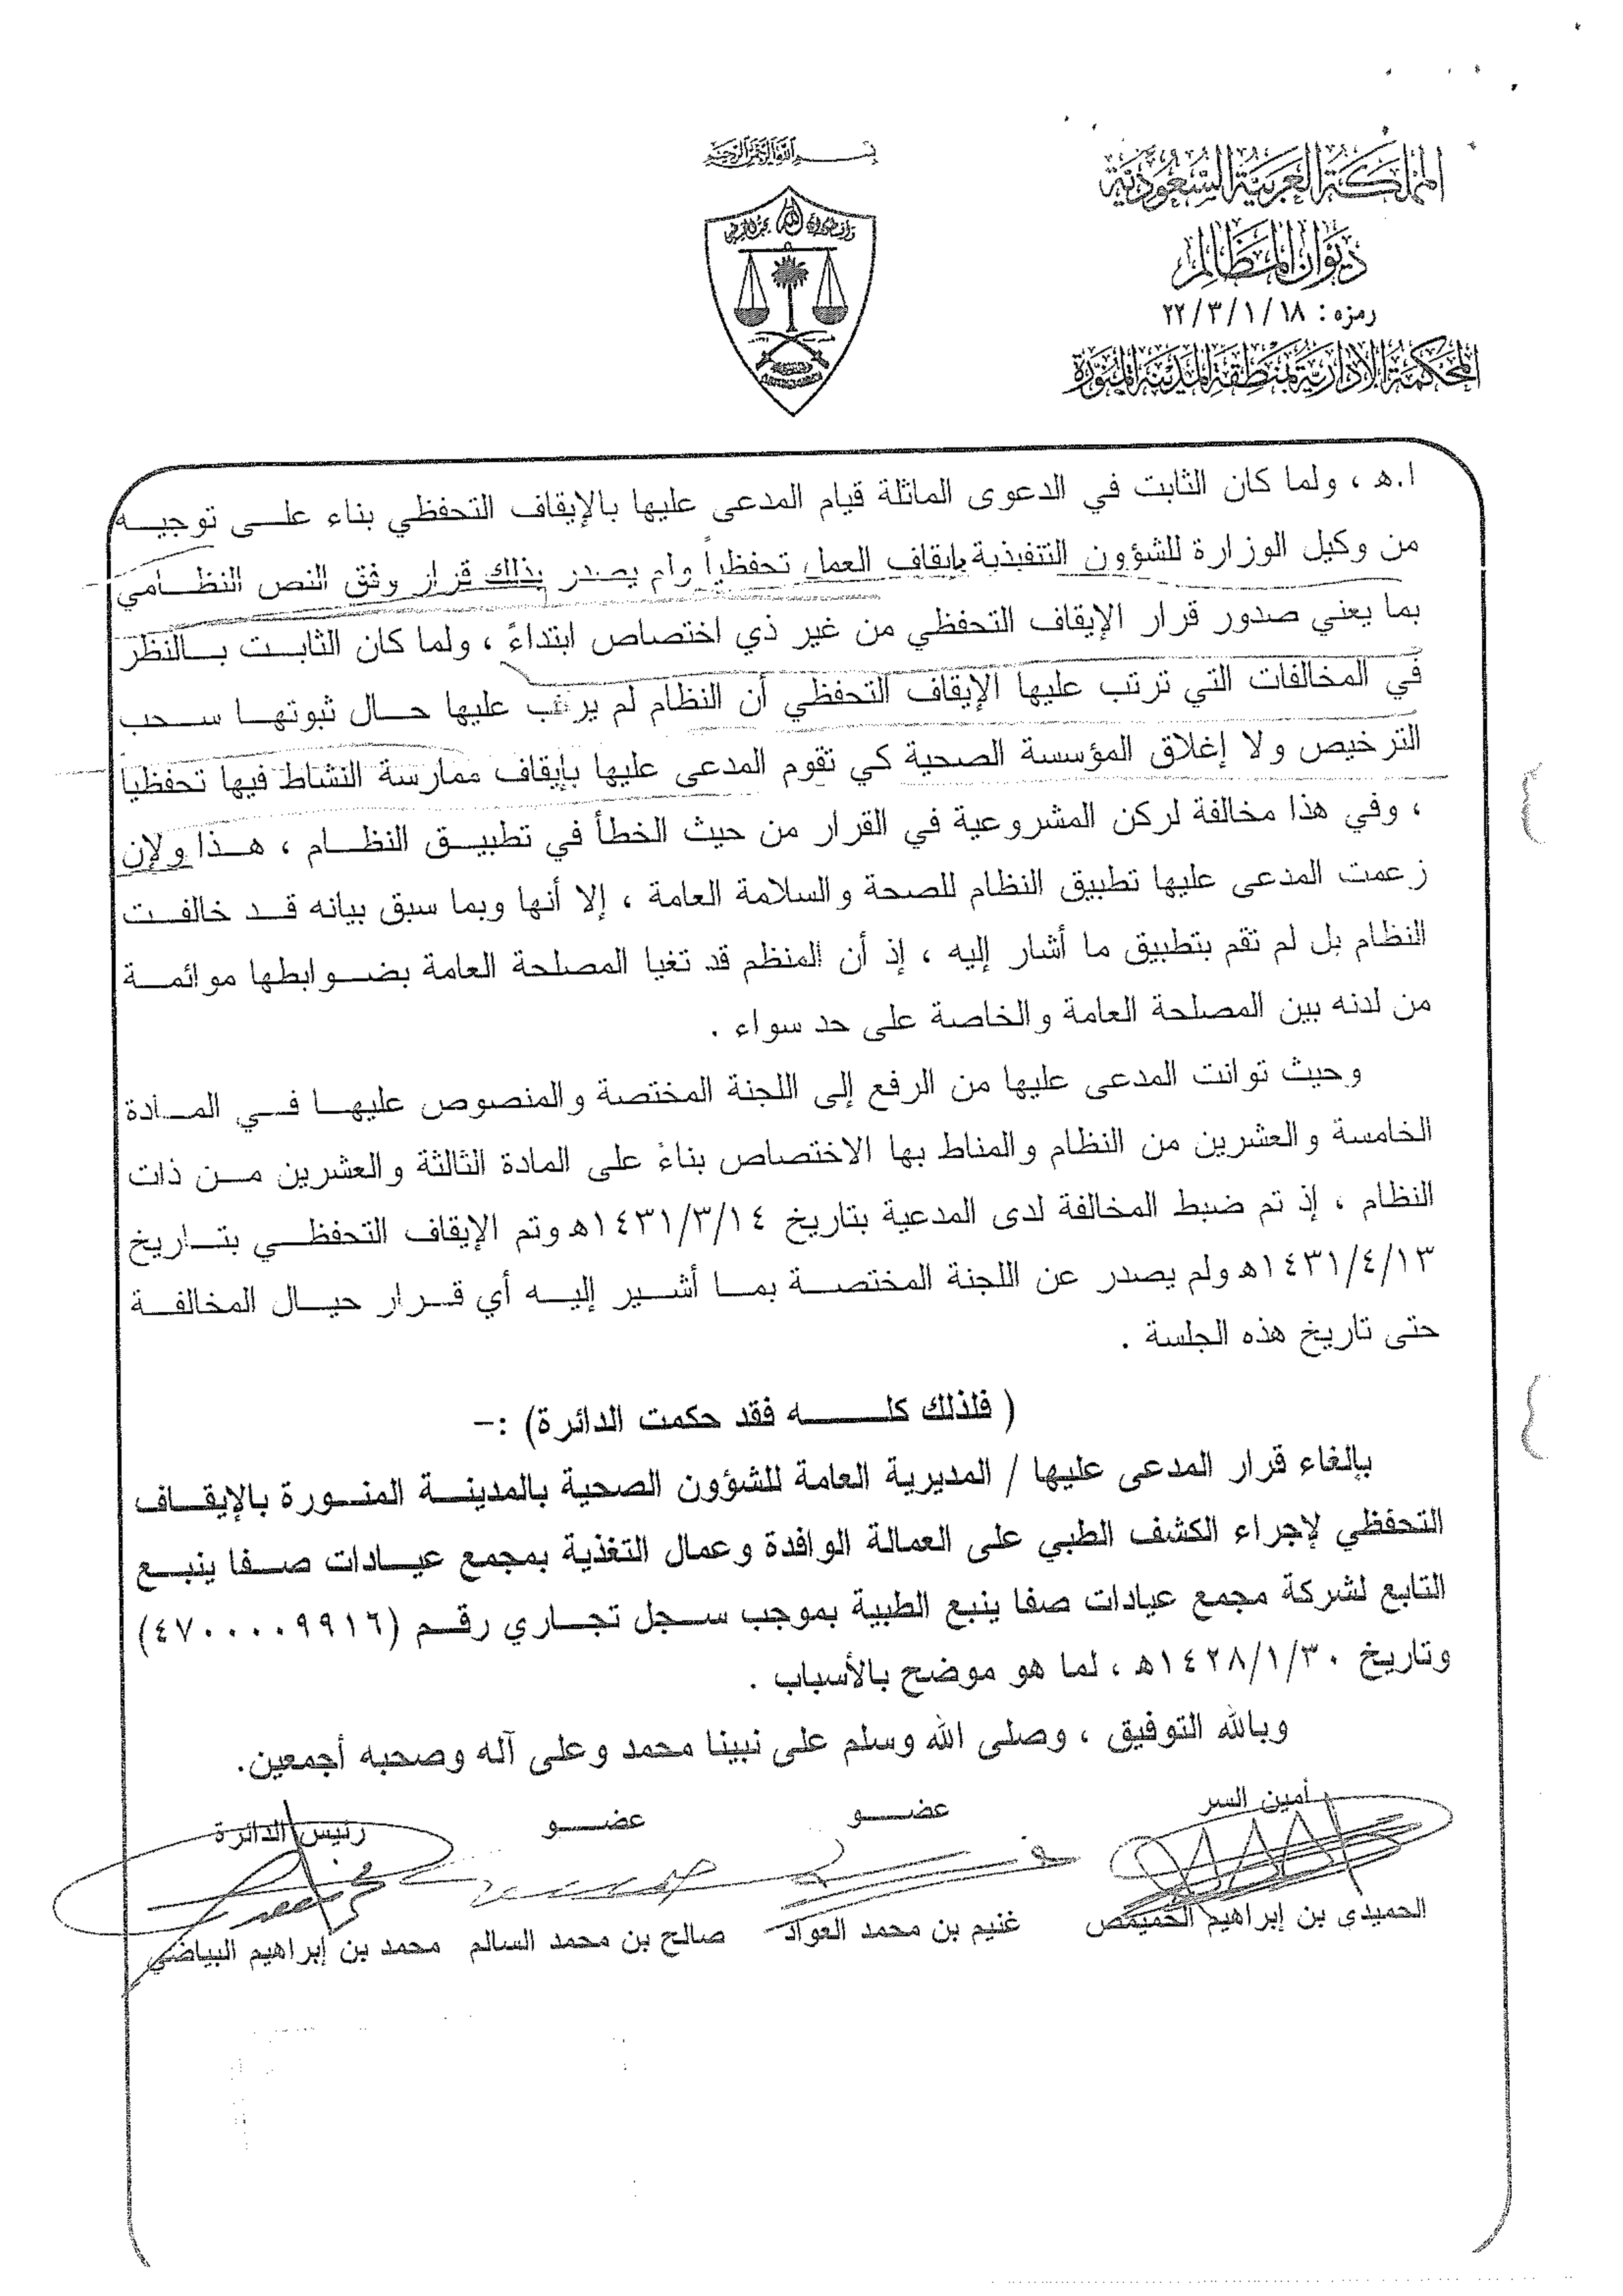 بسم الله الرحمن الرحيم
المملكة العربية السعودية
ديوان المظالم
رمزه : ٢٢/٣/١/١٨
المحكمة الإدارية بمنطقة المدينة المنورة
ا.هـ ، ولما كان الثابت في الدعوى الماثلة قيام المدعى عليها بالإيقاف التحفظي بناء على توجيه
من وكيل الوزارة للشؤون التنفيذية بإيقاف العمل تحفظياً ولم يصدر بذلك قرار وفق النص النظامي
بما يعني صدور قرار الإيقاف التحفظي من غير ذي اختصاص ابتداءً ، ولما كان الثابت بالنظر
في المخالفات التي ترتب عليها الإيقاف التحفظي أن النظام لم يرتب عليها حال ثبوتها سحب
الترخيص ولا إغلاق المؤسسة الصحية كي تقوم المدعى عليها بإيقاف ممارسة النشاط فيها تحفظياً
، وفي هذا مخالفة لركن المشروعية في القرار من حيث الخطأ في تطبيق النظام ، هذا ولإن
زعمت المدعى عليها تطبيق النظام للصحة والسلامة العامة ، إلا أنها وبما سبق بيانه قد خالفت
النظام بل لم تقم بتطبيق ما أشار إليه ، إذ أن المنظم قد تغيا المصلحة العامة بضوابطها موائمة
من لدنه بين المصلحة العامة والخاصة على حد سواء .
وحيث توانت المدعى عليها من الرفع إلى اللجنة المختصة والمنصوص عليها في المادة
الخامسة والعشرين من النظام والمناط بها الاختصاص بناءً على المادة الثالثة والعشرين من ذات
النظام ، إذ تم ضبط المخالفة لدى المدعية بتاريخ ١٤٣١/٣/١٤هـ وتم الإيقاف التحفظي بتاريخ
١٤٣١/٤/١٣هـ ولم يصدر عن اللجنة المختصة بما أشير إليه أي قرار حيال المخالفة
حتى تاريخ هذه الجلسة .
( فلذلك كله فقد حكمت الدائرة) :-
بإلغاء قرار المدعى عليها / المديرية العامة للشؤون الصحية بالمدينة المنورة بالإيقاف
التحفظي لإجراء الكشف الطبي على العمالة الوافدة وعمال التغذية بمجمع عيادات صفا ينبع
التابع لشركة مجمع عيادات صفا ينبع الطبية بموجب سجل تجاري رقم (٤٧٠٠٠٠٩٩١٦)
وتاريخ ١٤٢٨/١/٣٠هـ ، لما هو موضح بالأسباب .
وبالله التوفيق ، وصلى الله وسلم على نبينا محمد وعلى آله وصحبه أجمعين.
أمين السر عضو عضو رئيس الدائرة
الحميدي بن إبراهيم الحميمص غنيم بن محمد العواد صالح بن محمد السالم محمد بن إبراهيم البياضي